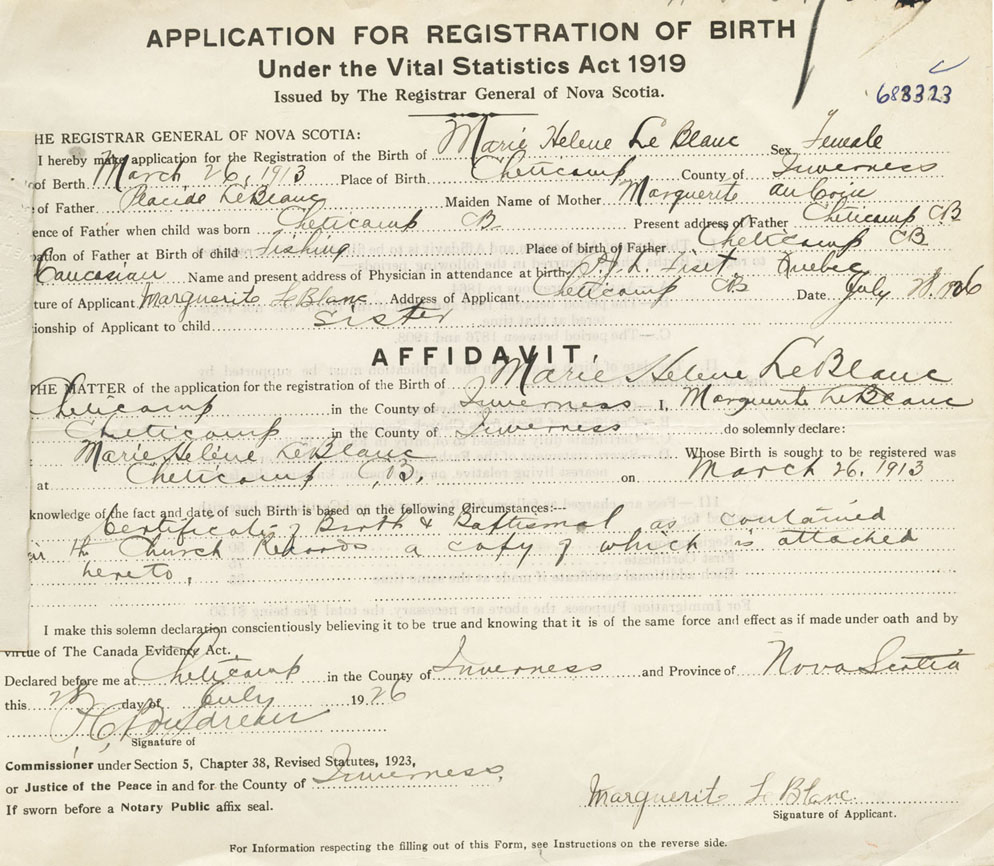 APPLICATION FOR REGISTRATION OF BIRTH
Under the Vital Statistics Act 1919
Issued by The Registrar General of Nova Scotia.
683323
HE REGISTRAR GENERAL OF NOVA SCOTIA:
I hereby make application for the Registration of the Birth of Marie Helene Le Blanc Sex Female
of Berth March 26, 1913 Place of Birth Cheticamp County of Inverness
of Father Placide LeBlanc Maiden Name of Mother Marguerite au Coin
ence of Father when child was born Cheticamp CB Present address of Father Cheticamp CB
pation of Father at Birth of child fishing Place of birth of Father Cheticamp CB
Caucasian Name and present address of Physician in attendance at birth Fiset Quebec
ture of Applicant Marguerite LeBlanc Address of Applicant Cheticamp CB Date July 28. 1926
ionship of Applicant to child sister
AFFIDAVIT.
THE MATTER of the application for the registration of the Birth of Marie Helene LeBlanc
Cheticamp in the County of Inverness I, Marguerite LeBlanc
Cheticamp in the County of Inverness do solemnly declare:
Marie Helène LeBlanc Whose Birth is sought to be registered was
at Cheticamp C,B, on March 26, 1913
knowledge of the fact and date of such Birth is based on the following Circumstances:--
Certificate of Birth & Baptismal as contained
in the Church Records a copy of which is attached
hereto,
I make this solemn declaration conscientiously believing it to be true and knowing that it is of the same force and effect as if made under oath and by
virtue of The Canada Evidence Act.
Declared before me at Cheticamp in the County of Inverness and Province of Nova Scotia
this 28 day of July 1926
Boudreau
Signature of
Commissioner under Section 5, Chapter 38, Revised Statutes, 1923,
or Justice of the Peace in and for the County of Inverness.
If sworn before a Notary Public affix seal.
Marguerite Le Blanc
Signature of Applicant.
For Information respecting the filling out of this Form, see Instructions on the reverse side.